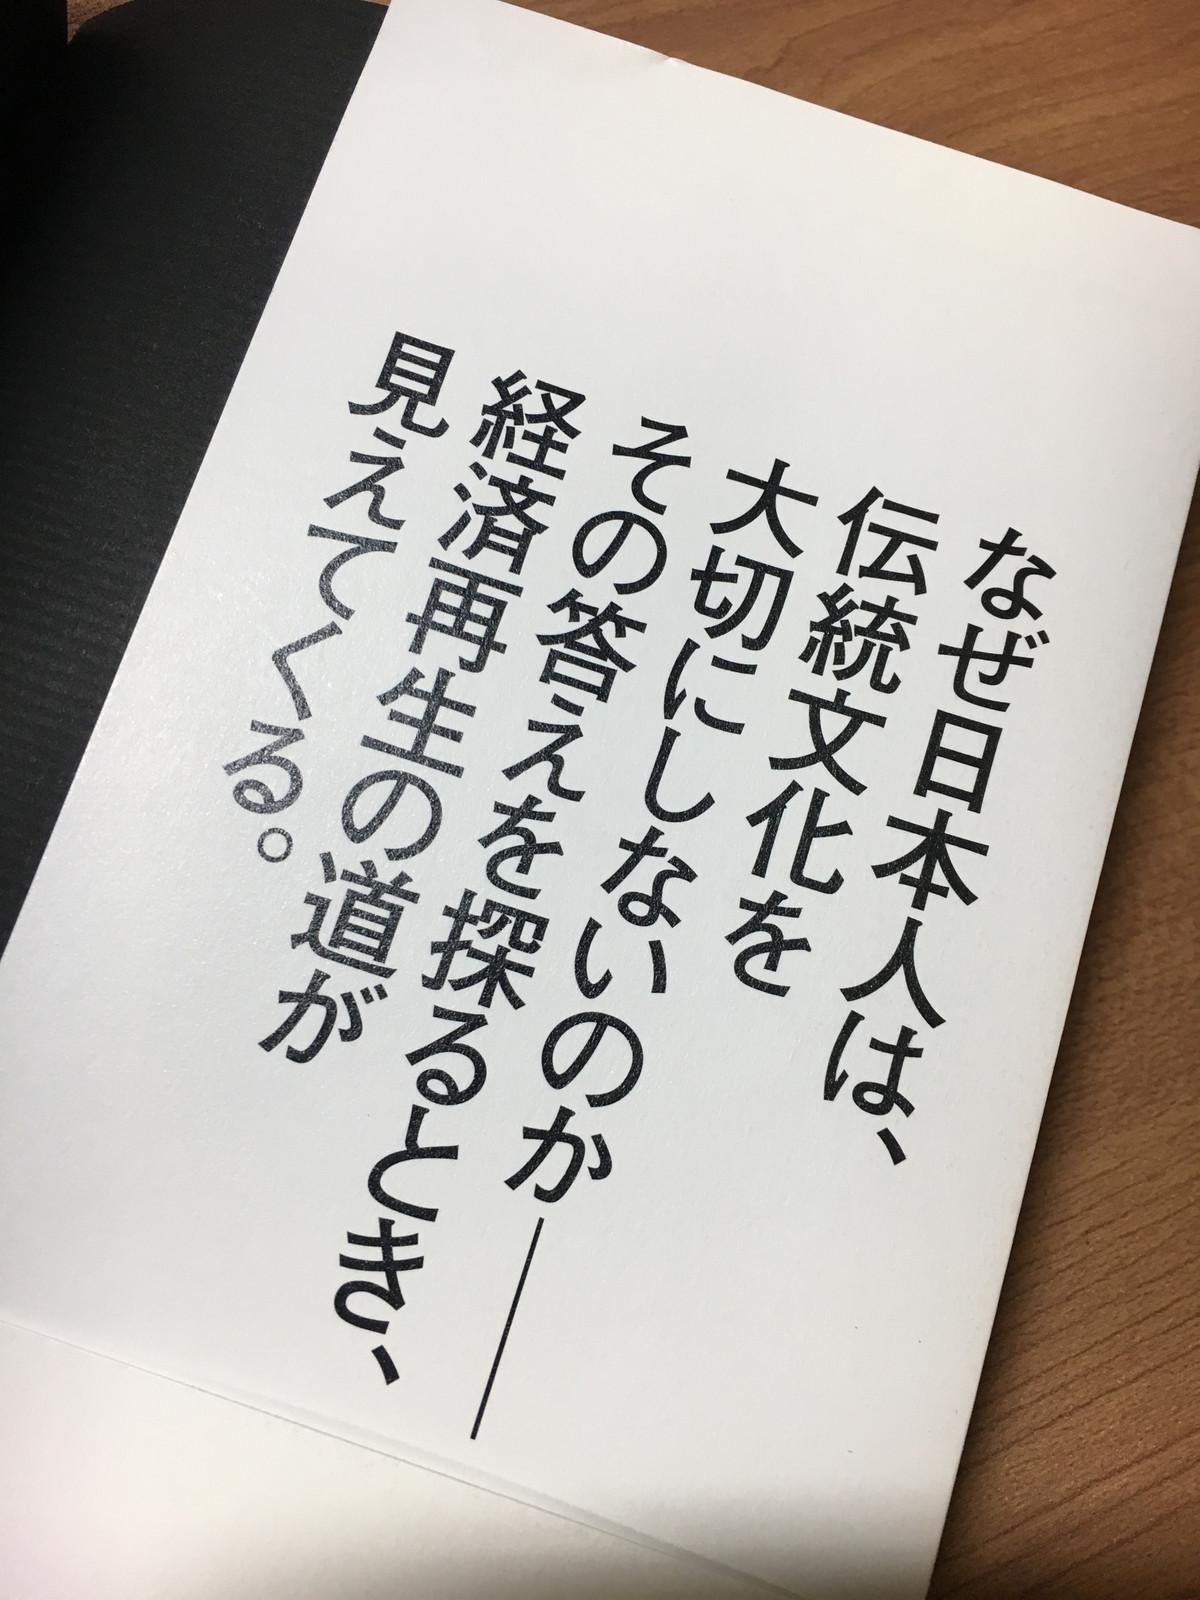 なぜ日本人は、
伝統文化を
大切にしないのか——
その答えを探るとき、
経済再生の道が
見えてくる。